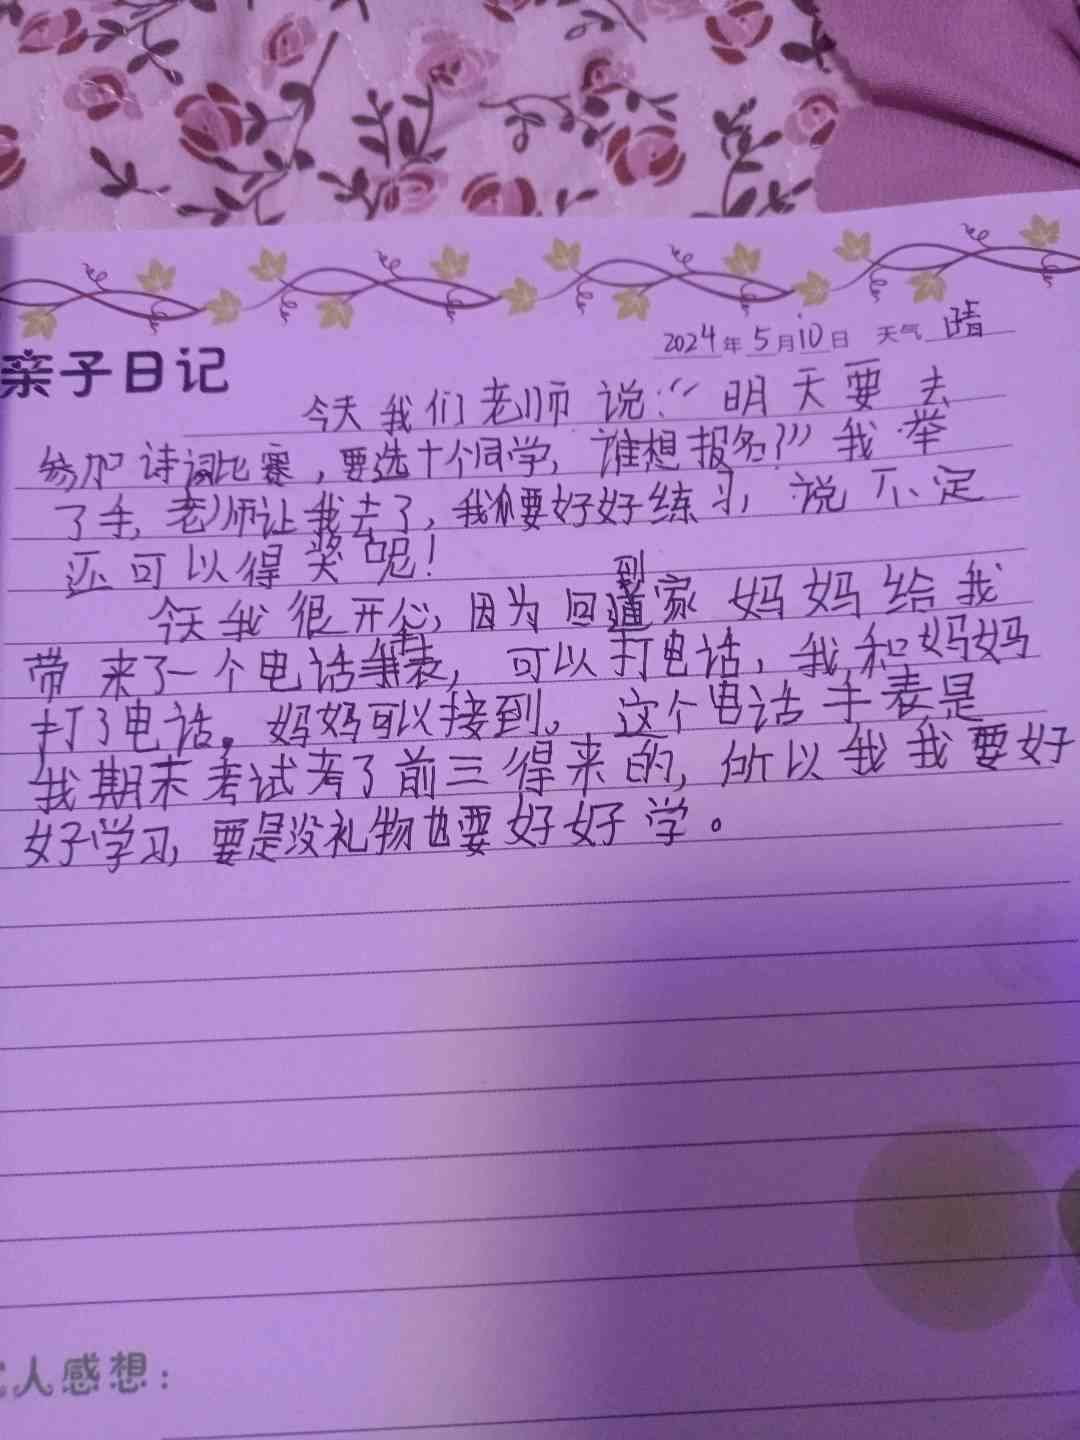 2024年5月10日 天气 晴
亲子日记
今天我们老师说:“明天要去
参加诗词比赛,要选十个同学,谁想报名?”我举
了手,老师让我去了,我要好好练习,说不定
还可以得奖呢!
今天我很开心,因为回到家妈妈给我
带来了一个电话手表,可以打电话,我和妈妈
打了电话。妈妈可以接到。这个电话手表是
我期末考试考了前三得来的,所以我我要好
好学习,要是没礼物也要好好学。
人感想: